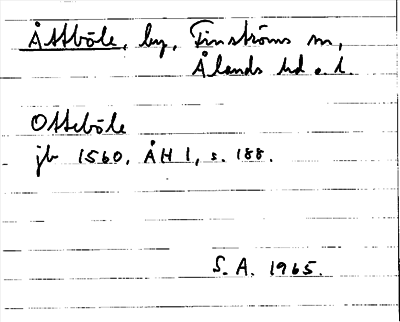 Åttböle, by, Finströms sn,
Ålands hd o. l.
Otteböle
jb 1560, ÅH 1, s. 188.
S. A. 1965.